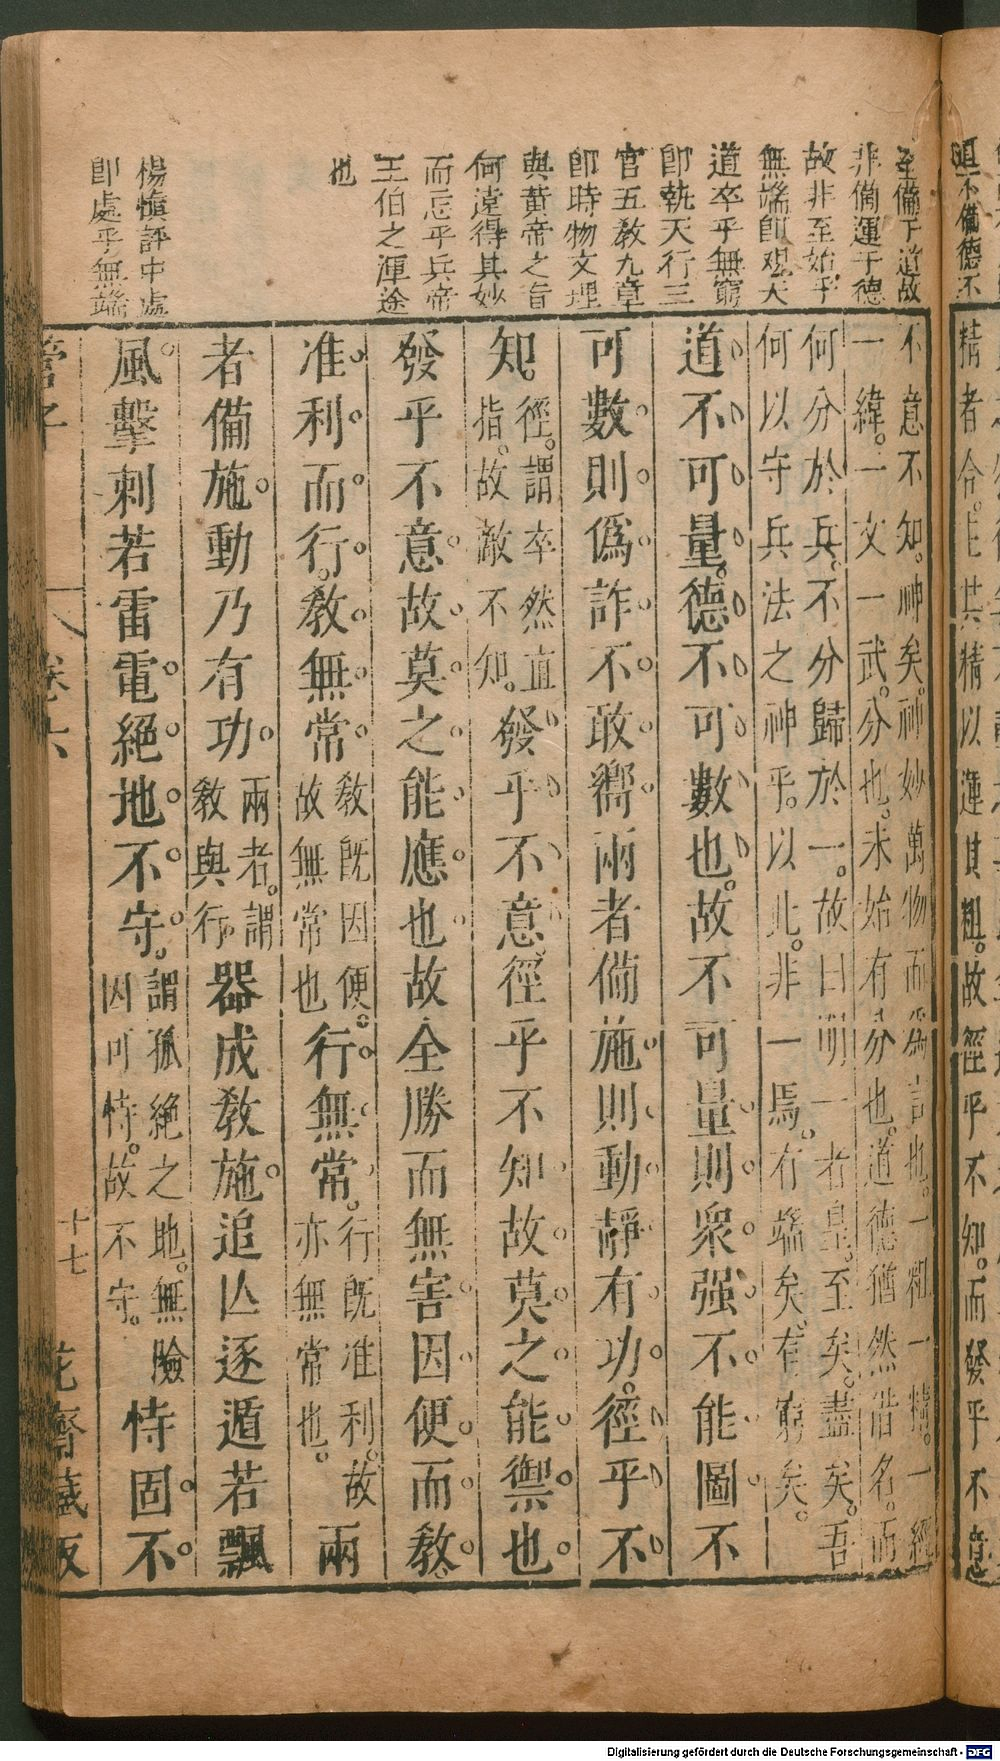 至備于道故
非備運于德
故非至始乎
無端卽觀天
道卒乎無窮
卽執天行三
官五教九章
卽時物文理
與黃帝之旨
何遠得其妙
而忘乎兵帝
王伯之渾途
也
楊慎評中處
卽處乎無端
不意不知神矣神妙萬物而爲言也一粗一精一經
一緯一文一武分也未始有分也道德猶然借名而
何分於兵不分歸於一故曰明一者皇至矣盡矣吾
何以守兵法之神乎以此非一焉有端矣有窮矣
道不可量德不可數也故不可量則衆强不能圖不
可數則僞詐不敢嚮兩者備施則動靜有功徑乎不
知徑謂卒然直
指故敵不知發乎不意徑乎不知故莫之能禦也
發乎不意故莫之能應也故全勝而無害因便而教
准利而行教無常教既因便
故無常也行無常行既准利故
亦無常也兩
者備施動乃有功兩者謂
教與行器成教施追亾逐遁若飄
風擊刺若雷電絕地不守謂孤絕之地無險
因可恃故不守恃固不
管子
卷六
十七
花齋藏板
精者合
其精以運其粗故徑乎不知而發乎不意
Digitalisierung gefördert durch die Deutsche Forschungsgemeinschaft - DFG